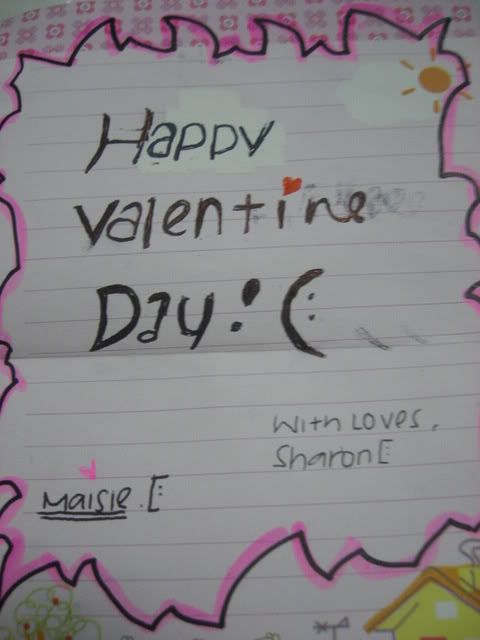 Happy
Valentine
Day! (:
With Loves,
Sharon [:
Maisie. [: